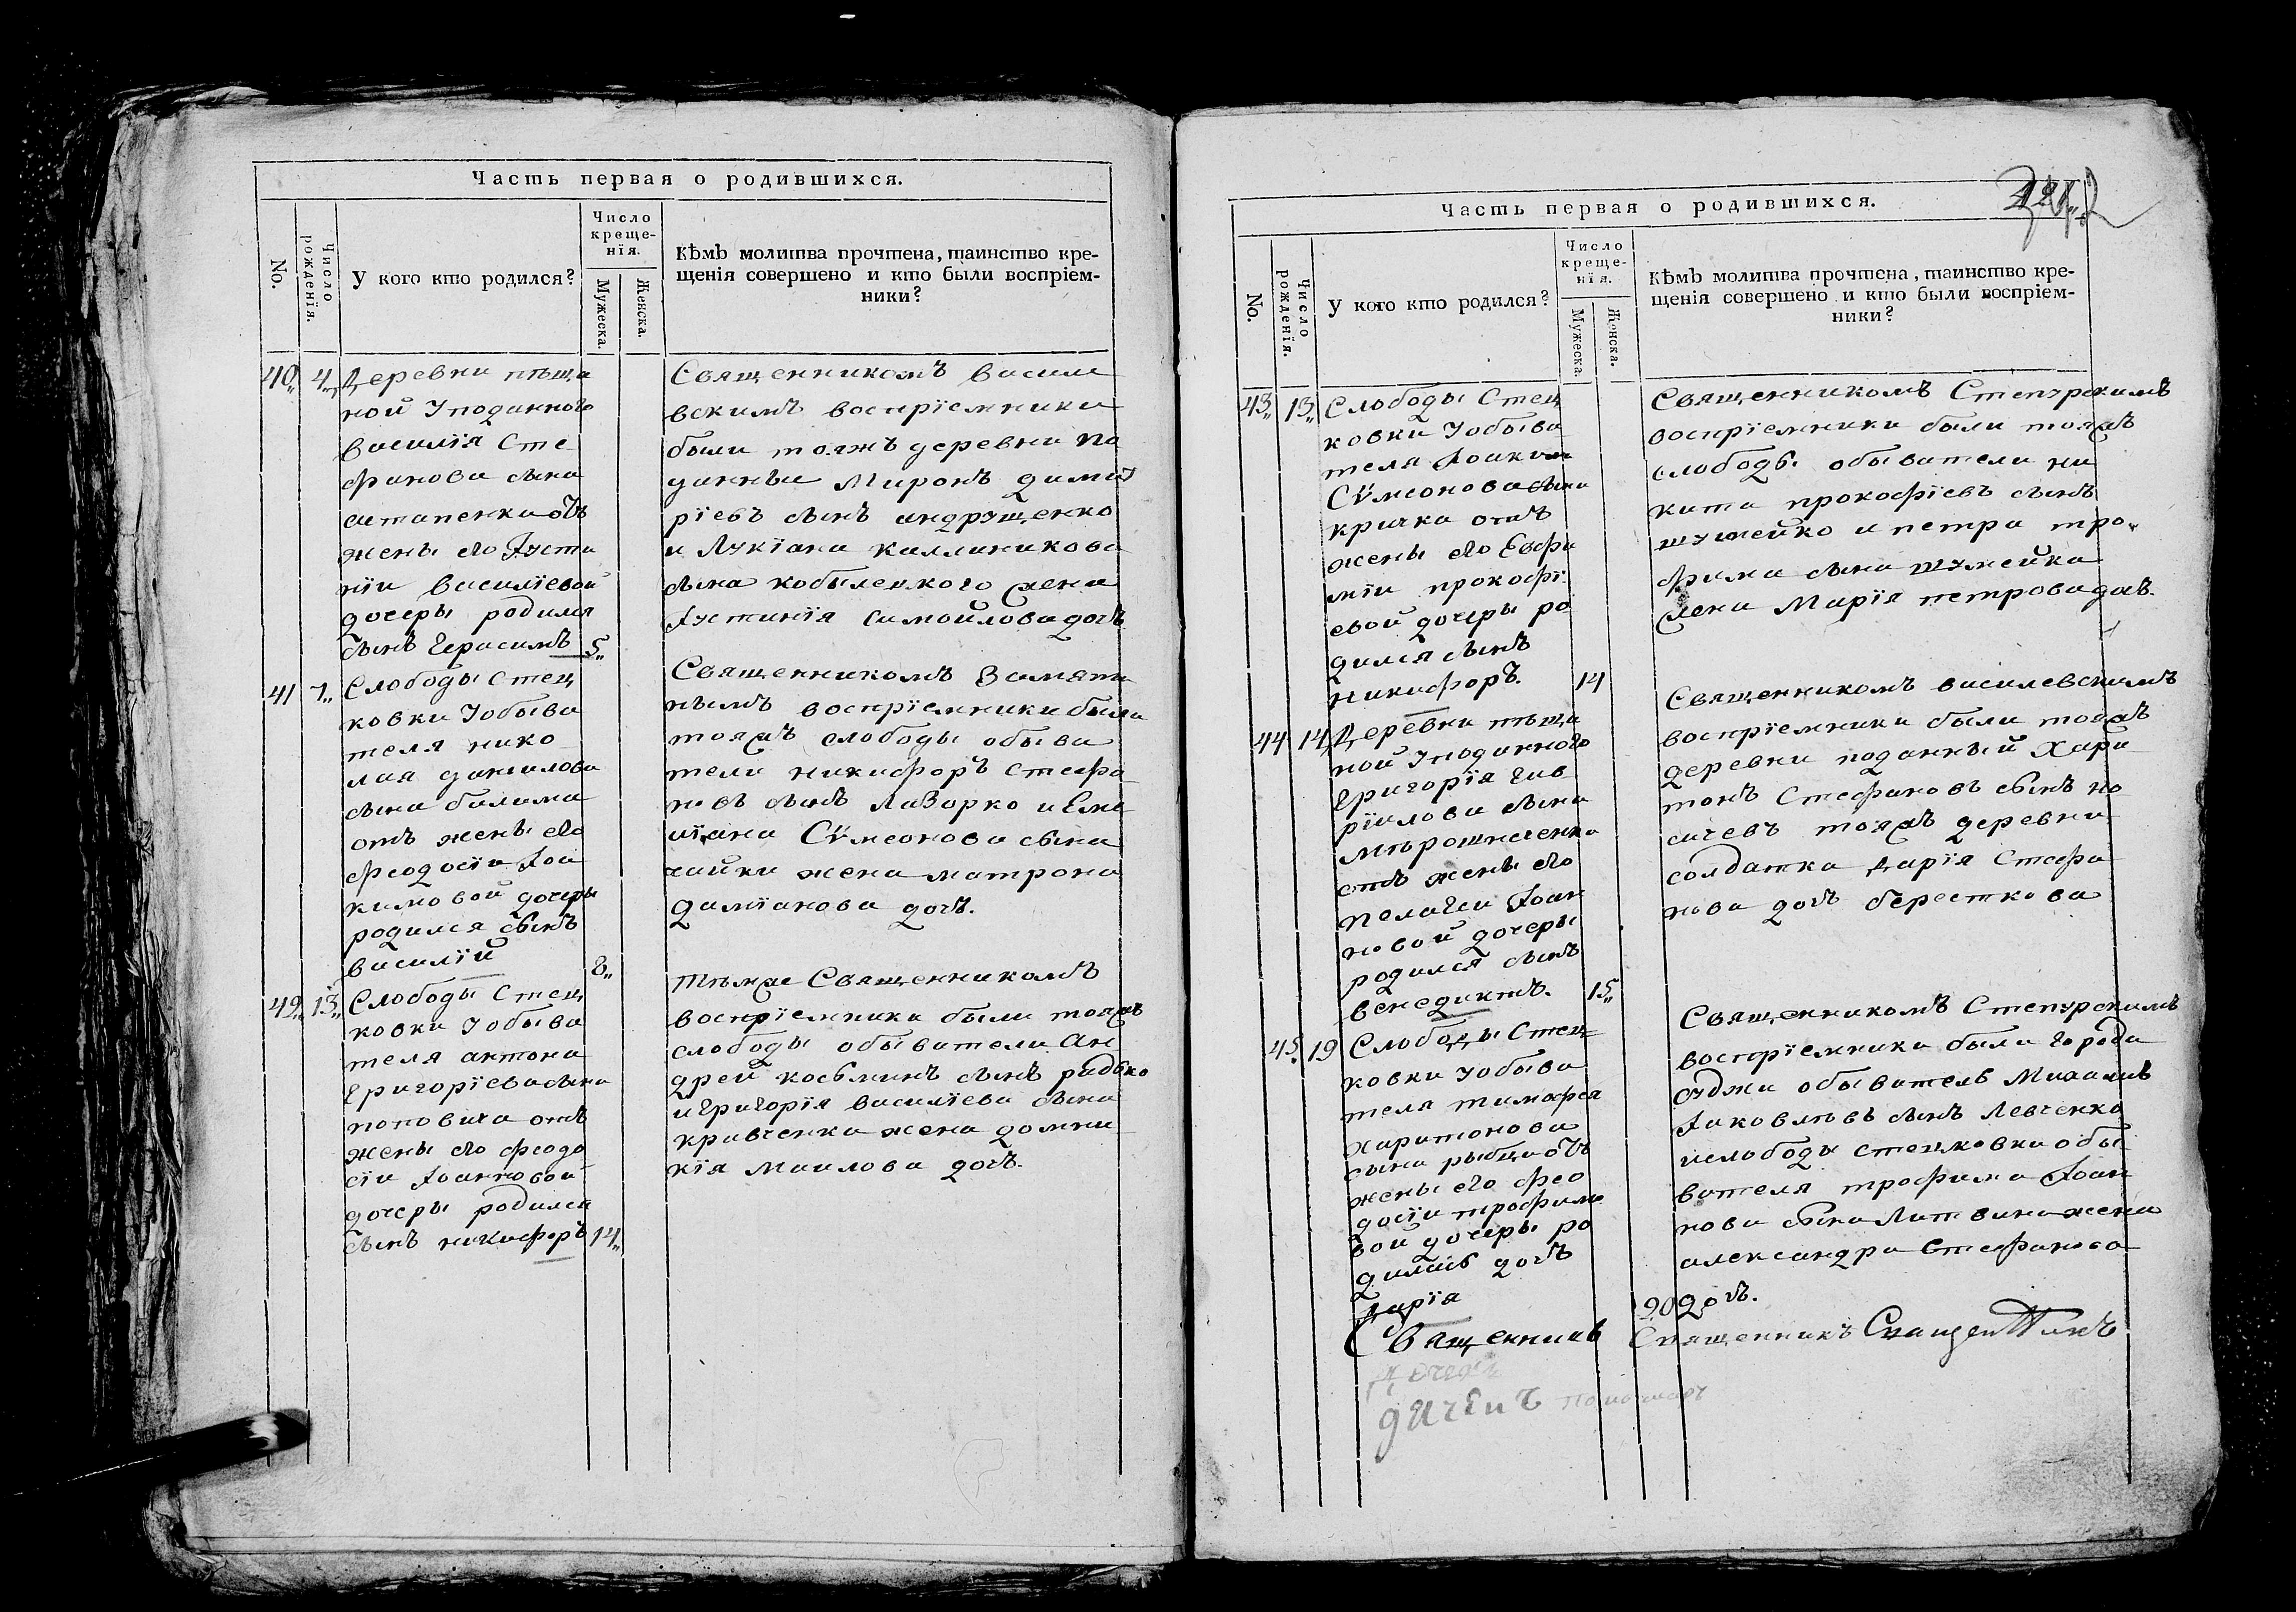 Часть первая о родившихся.
No.
Число рожденїя.
У кого кто родился?
Число креще-
нїя.
Мужеска.
Женска.
Кѣмъ молитва прочтена, таинство кре-
щенія совершено и кто были воспріем-
ники?
40 4 Деревни пѣща
ной Уподанного
василїя Сте
фанова сына
остапенка отъ
жены его Іуста
нїи василїевой
дочеры родился
сынъ Герасимъ 5
Священникомъ васили
вскимъ воспрїемники
были тояжъ деревни по
данныи Миронъ дамит
рїевъ сынъ андрущенко
и Лукїана каллиникова
сына кобылецкого жена
Іустинїя самойлова дочь
41 7 Слободы Стец
ковки Уобыва
теля нико
лая данилова
сына
отъ жены его
феодосїи Іоа
кимовой дочеры
родился сынъ
василїй 8
Священникомъ Замяти
нымъ воспрїемники были
тояжъ слободы обыва
тели никифоръ стефа
новъ сынъ лазорко и Еме
лїана Сѵмеонова сына
чайки жена матрона
дамїанова дочь.
42 13 Слободы Стец
ковки Уобыва
теля антона
Григорїева сына
поповича отъ
жены его феодо
сїи Іоанновой
дочеры родился
сынъ никифоръ 14
тѣмже Священникомъ
воспрїемники были тояжъ
слободы обыватели Ан
дрей косьминъ сынъ радько
и Григорїя василїева сына
кравченка жена домни
кїя Маилова дочь.
Часть первая о родившихся.
No.
Число рожденїя.
У кого кто родился?
Число креще-
нїя.
Мужеска.
Женска.
Кѣмъ молитва прочтена, таинство кре-
щенія совершено и кто были воспріем-
ники?
43 13 Слободы Стец
ковки Уобыва
теля Іоакима
Сѵмеонова сына
кричка отъ
жены его Евфи
мїи прокофї
евой дочеры ро
дился сынъ
Никифоръ. 14
Священникомъ Степурскимъ
воспрїемники были тояжъ
слободы обыватели ни
кита прокофїевъ сынъ
шумейко и петра тро
фима сына шумейка
жена Марїя петрова дочь.
44 14 Деревни пѣща
ной Уподанного
Григорїя Гав
рїилова сына
мѣрошниченка
отъ жены его
пелагеи Іоан
новой дочеры
родился сынъ
венедиктъ. 15
Священникомъ василевскимъ
воспрїемники были тояжъ
деревни поданный Хари
тонъ Стефановъ сынъ но
сачевъ тояжъ деревни
солдатка дарїя Стефа
нова дочь Бересткова
45 19 Слободы Стец
ковки Уобыва
теля тимофея
харитонова
сына рыбца отъ
жены его фео
досїи трофимо
вой дочеры ро
дилась дочь
дарїя 20
Священникомъ Степурскимъ
воспрїемники были города
суджи обыватель Михаилъ
Іаковлѣвъ сынъ Левченко
ислободы стецковки обы
вателя трофима Іоан
нова сына Литвина жена
александра Стефанова
дочь.
Священникъ Священникъ
дячекъ
дячекъ пономарь